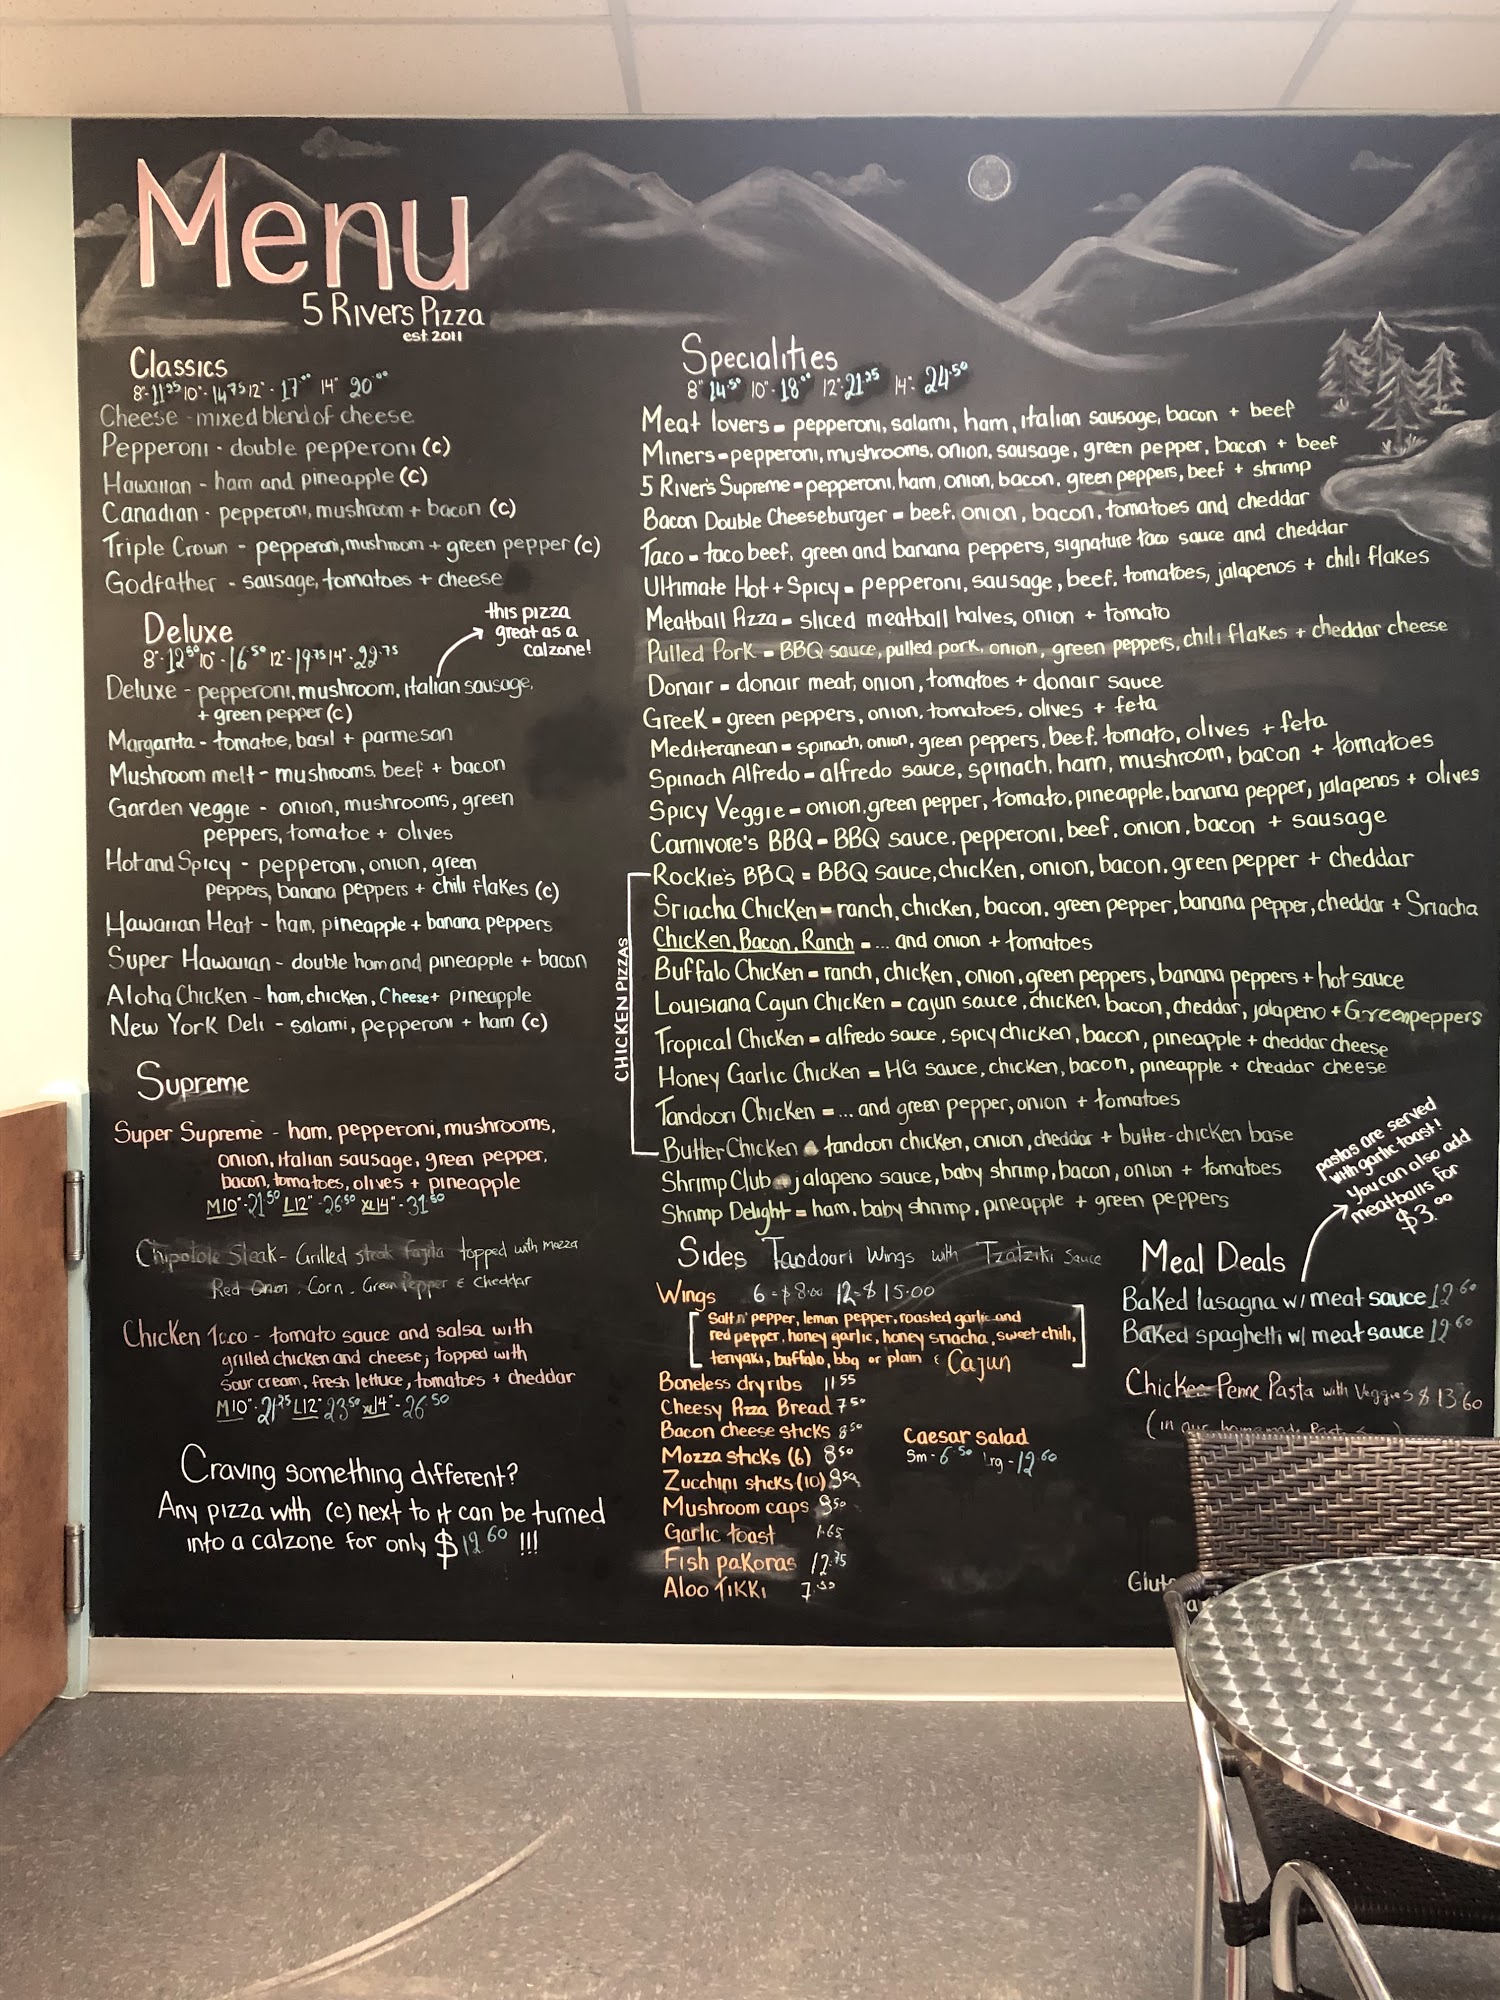 Menu
5 Rivers Pizza
est 2011
Classics
8"-11.25 10"-14.75 12"-17.00 14" 20.00
Cheese - mixed blend of cheese
Pepperoni - double pepperoni (c)
Hawaiian - ham and pineapple (c)
Canadian - pepperoni, mushroom + bacon (c)
Triple Crown - pepperoni, mushroom + green pepper (c)
Godfather - sausage, tomatoes + cheese
this pizza
great as a
calzone!
Deluxe
8"-12.50 10"-16.50 12"-19.75 14"-22.75
Deluxe - pepperoni, mushroom, italian sausage,
+ green pepper (c)
Margarita - tomatoe, basil + parmesan
Mushroom melt - mushrooms, beef + bacon
Garden veggie - onion, mushrooms, green
peppers, tomatoe + olives
Hot and Spicy - pepperoni, onion, green
peppers, banana peppers + chili flakes (c)
Hawaiian Heat - ham, pineapple + banana peppers
Super Hawaiian - double ham and pineapple + bacon
Aloha Chicken - ham, chicken, Cheese + pineapple
New York Deli - salami, pepperoni + ham (c)
Supreme
Super Supreme - ham, pepperoni, mushrooms,
onion, italian sausage, green pepper,
bacon, tomatoes, olives + pineapple
M10"-21.50 L12"-26.50 XL14"-31.50
Chipotole Steak - Grilled steak Fajita topped with mozza
Red Onion, Corn, Green Pepper & Cheddar
Chicken Taco - tomato sauce and salsa with
grilled chicken and cheese; topped with
sour cream, fresh lettuce, tomatoes + cheddar
M10"-21.25 L12"-23.50 XL14"-26.50
Craving something different?
Any pizza with (c) next to it can be turned
into a calzone for only $12.60 !!!
Specialities
8" 14.50 10"-18.00 12"-21.25 14"-24.50
Meat lovers = pepperoni, salami, ham, italian sausage, bacon + beef
Miners = pepperoni, mushrooms, onion, sausage, green pepper, bacon + beef
5 River's Supreme = pepperoni, ham, onion, bacon, green peppers, beef + shrimp
Bacon Double Cheeseburger = beef, onion, bacon, tomatoes and cheddar
Taco = taco beef, green and banana peppers, signature taco sauce and cheddar
Ultimate Hot + Spicy = pepperoni, sausage, beef, tomatoes, jalapenos + chili flakes
Meatball Pizza = sliced meatball halves, onion + tomato
Pulled Pork = BBQ sauce, pulled pork, onion, green peppers, chili flakes + cheddar cheese
Donair = donair meat, onion, tomatoes + donair sauce
Greek = green peppers, onion, tomatoes, olives + feta
Mediteranean = spinach, onion, green peppers, beef, tomato, olives + feta
Spinach Alfredo = alfredo sauce, spinach, ham, mushroom, bacon + tomatoes
Spicy Veggie = onion, green pepper, tomato, pineapple, banana pepper, jalapenos + olives
Carnivore's BBQ = BBQ sauce, pepperoni, beef, onion, bacon + sausage
CHICKEN PIZZAS
Rockie's BBQ = BBQ sauce, chicken, onion, bacon, green pepper + cheddar
Sriacha Chicken = ranch, chicken, bacon, green pepper, banana pepper, cheddar + Sriacha
Chicken, Bacon, Ranch = ... and onion + tomatoes
Buffalo Chicken = ranch, chicken, onion, green peppers, banana peppers + hot sauce
Louisiana Cajun Chicken = cajun sauce, chicken, bacon, cheddar, jalapeno + Greenpeppers
Tropical Chicken = alfredo sauce, spicy chicken, bacon, pineapple + cheddar cheese
Honey Garlic Chicken = HG sauce, chicken, bacon, pineapple + cheddar cheese
Tandoori Chicken = ... and green pepper, onion + tomatoes
Butter Chicken = tandoori chicken, onion, cheddar + butter-chicken base
Shrimp Club = jalapeno sauce, baby shrimp, bacon, onion + tomatoes
Shrimp Delight = ham, baby shrimp, pineapple + green peppers
Sides Tandoori Wings with Tzatziki Sauce
Wings 6-$8.00 12-$15.00
Salt n' pepper, lemon pepper, roasted garlic and
red pepper, honey garlic, honey sriacha, sweet chili,
teriyaki, buffalo, bbq or plain & Cajun
Boneless dry ribs 11.55
Cheesy Pizza Bread 7.50
Bacon cheese sticks 8.50
Mozza sticks (6) 8.50
Zucchini sticks (10) 8.50
Mushroom caps 8.50
Garlic toast 1.65
Fish pakoras 12.75
Aloo Tikki 7.50
Caesar salad
Sm-6.50 Lrg-12.60
pastas are served
with garlic toast!
You can also add
meatballs for
$3.00
Meal Deals
Baked lasagna w/ meat sauce 12.60
Baked spaghetti w/ meat sauce 12.60
Chicken Penne Pasta with Veggies $13.60
(in our homemade